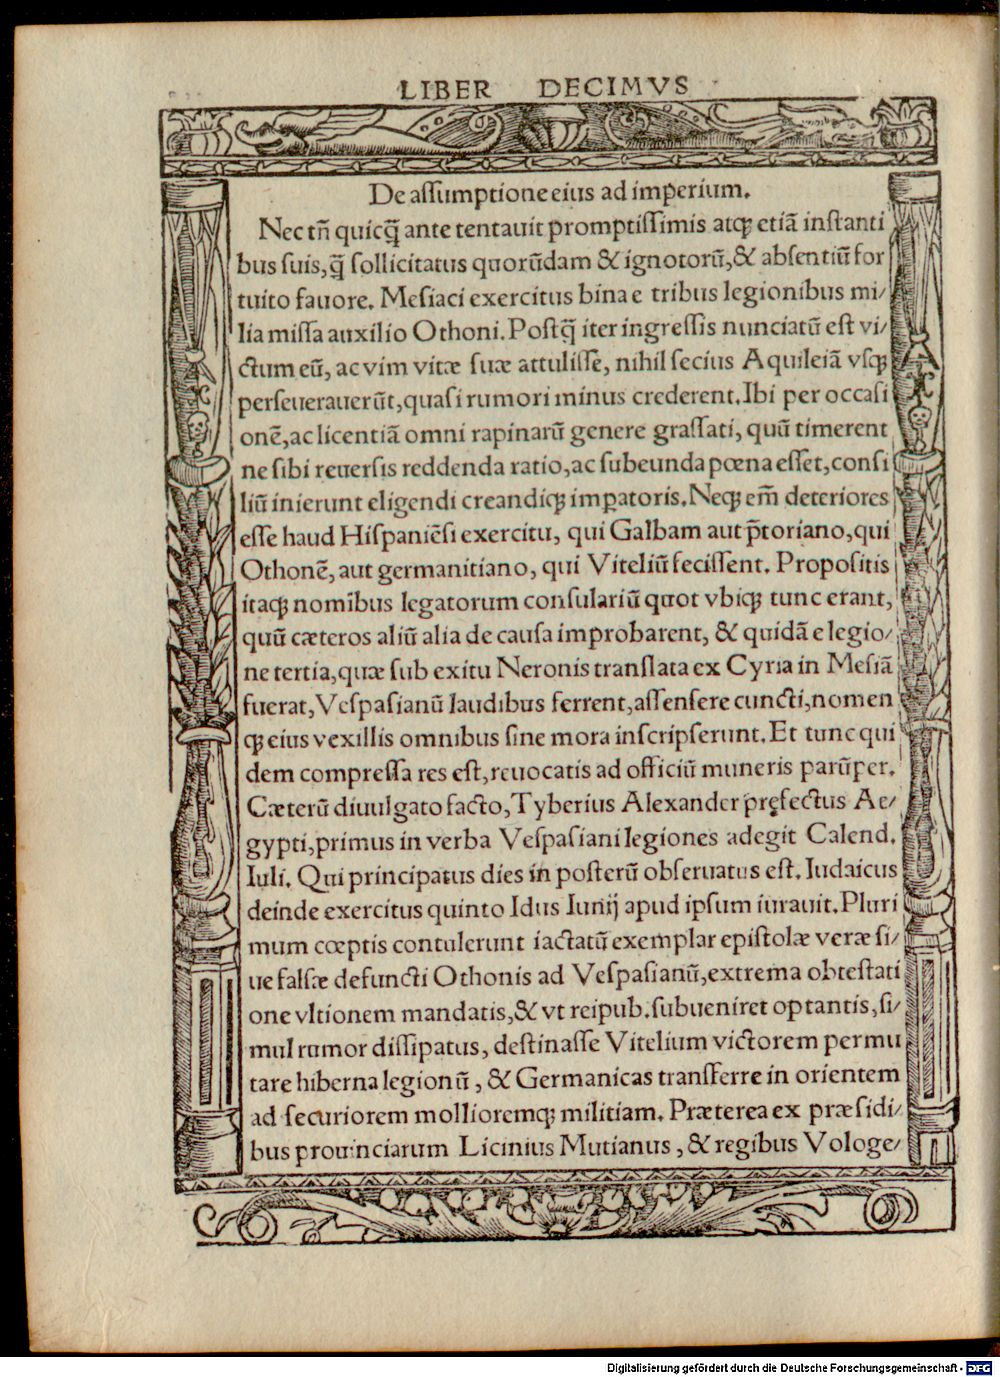 LIBER DECIMVS
De assumptione eius ad imperium.
Nec tñ quicq̃ ante tentauit promptissimis atqꝫ etiã instanti
bus suis, q̃ sollicitatus quorũdam & ignotorũ, & absentiũ for
tuito fauore. Mesiaci exercitus bina e tribus legionibus mi/
lia missa auxilio Othoni. Postq̃ iter ingressis nunciatũ est vi/
ctum eũ, ac vim vitæ suæ attulisse, nihil secius Aquileiã vsqꝫ
perseuerauerũt, quasi rumori minus crederent. Ibi per occasi
onẽ, ac licentiã omni rapinarũ genere grassati, quũ timerent
ne sibi reuersis reddenda ratio, ac subeunda pœna esset, consi
liũ inierunt eligendi creandiqꝫ imꝑatoris. Neqꝫ em̃ deteriores
esse haud Hispaniẽsi exercitu, qui Galbam aut p̃toriano, qui
Othonẽ, aut germanitiano, qui Viteliũ fecissent. Propositis
itaqꝫ nomĩbus legatorum consulariũ quot vbiqꝫ tunc erant,
quũ cæteros aliũ alia de causa improbarent, & quidã e legio/
ne tertia, quæ sub exitu Neronis translata ex Cyria in Mesiã
fuerat, Vespasianũ laudibus ferrent, assensere cuncti, nomen
qꝫ eius vexillis omnibus sine mora inscripserunt. Et tunc qui
dem compressa res est, reuocatis ad officiũ muneris parũper.
Cæterũ diuulgato facto, Tyberius Alexander pręfectus Ae/
gypti, primus in verba Vespasiani legiones adegit Calend.
Iuli. Qui principatus dies in posterũ obseruatus est. Iudaicus
deinde exercitus quinto Idus Iunij apud ipsum iurauit. Pluri
mum cœptis contulerunt iactatũ exemplar epistolæ veræ si/
ue falsæ defuncti Othonis ad Vespasianũ, extrema obtestati
one vltionem mandatis, & vt reipub. subueniret optantis, si/
mul rumor dissipatus, destinasse Vitelium victorem permu
tare hiberna legionũ, & Germanicas transferre in orientem
ad securiorem mollioremqꝫ militiam. Præterea ex præsidi/
bus prouinciarum Licinius Mutianus, & regibus Vologe/
Digitalisierung gefördert durch die Deutsche Forschungsgemeinschaft - DFG